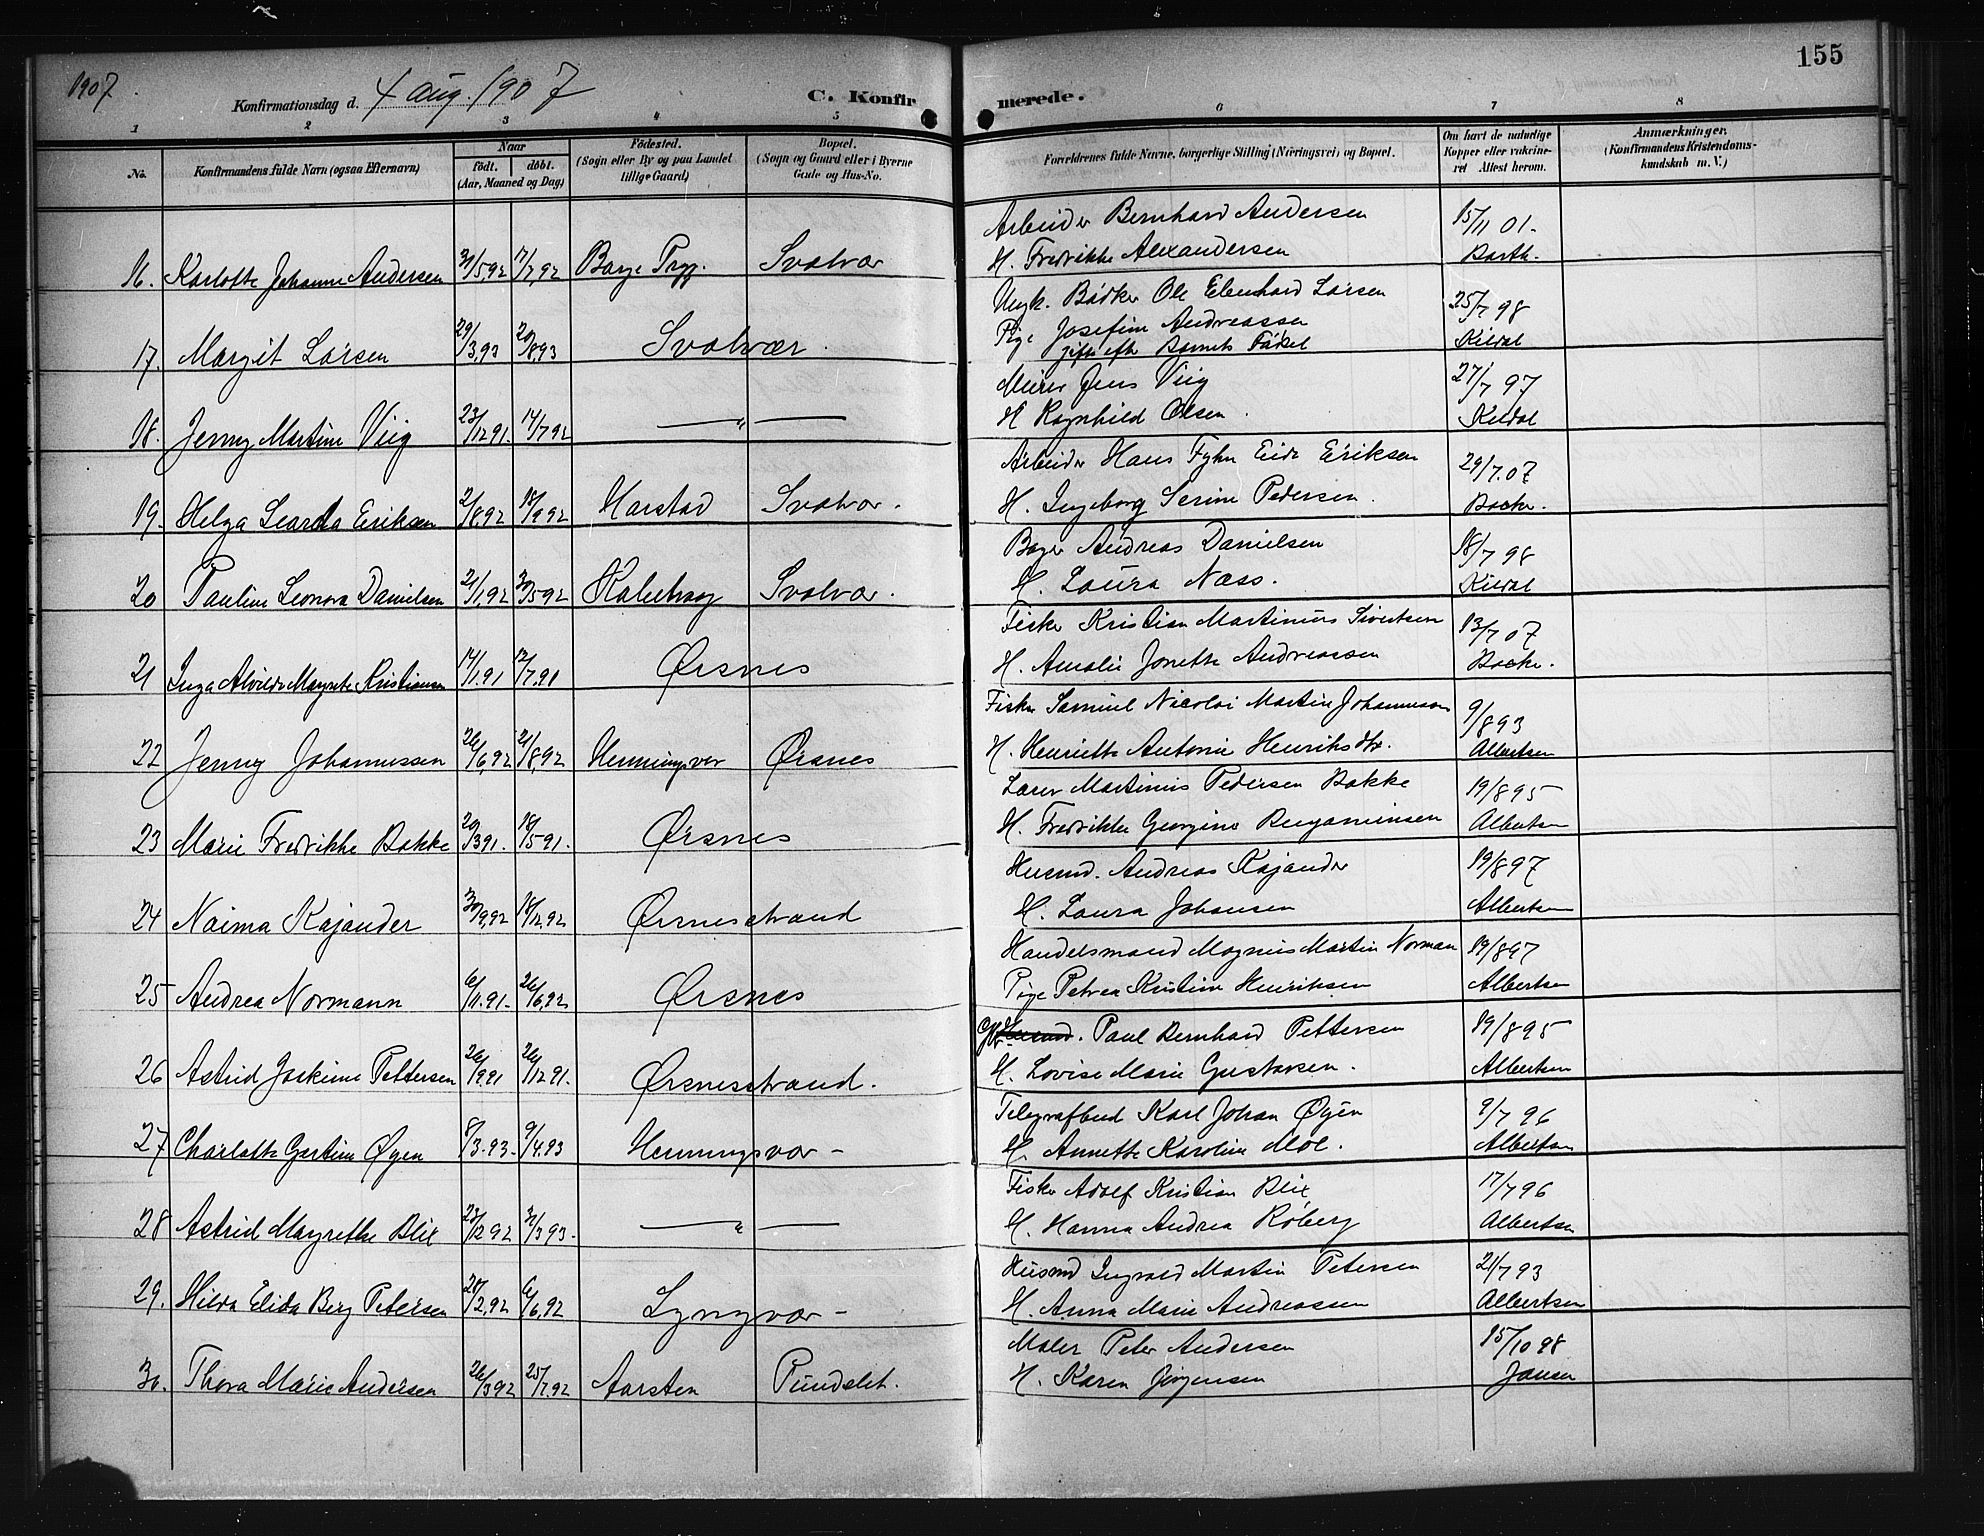 1907
155
Konfirmationsdag d. 4 aug. 1907
C. Konfirmerede.
1 2 3 4 5 6 7 8
No.
Konfirmandens fulde Navn (ogsaa Efternavn)
Naar
født. døbt.
(Aar, Maaned og Dag)
Fødested.
(Sogn eller By og paa Landet
tillige Gaard)
Bopæl.
(Sogn og Gaard eller i Byerne
Gade og Hus-No.
Forældrenes fulde Navne, borgerlige Stilling (Næringsvei) og Bopæl.
Om havt de naturlige
Kopper eller vakcine-
ret Attest herom.
Anmærkninger.
(Konfirmandens Kristendoms-
kundskab m. V.)
Arbeider Bernhard Andersen 15/11 01.
16. Karlotte Johanne Andersen 31/5,92 17/7,92 Borge Svolvær H. Fredrikke Alexandersen Barth.
Ungk. Bødker Ole Edenhard Larsen 25/7 98
17. Margit Larsen 29/3,93 20/8,93 Svolvær Pige Josefine Andreassen Kildal
gift efter Barnets Fødsel
Meier Jens Viig 27/7 97
18. Jenny Martine Viig 23/12 91. 17/7 92 — " — H Ragnhild Olsen Kildal
Arbeider Hans Fyhn Eide Eriksen 29/7.07
19. Helga Eriksen 2/8,92 18/9 92 Harstad Svolvær. H. Ingeborg Serine Pedersen. Backe.
Bager Andreas Danielsen 18/7 98
20 Pauline Leonora Danielsen 21/1,92 30/5 92 Kabelvaag Svolvær. H. Laura Næss. Kildal
Fisker Kristian Martinius Sivertsen 13/7 07
21 Inga Alvilde Margrete Kristiansen 14/1.91 12/7.91 Ørsnes H. Amalie Jonette Andreassen Backe.
Fisker Samuel Nicolai Martin Johannessen 9/8 93
22 Jenny Johannessen 26/6,92 21/8,92 Henningsvær Ørsnes H. Henriette Antonie Henriksdtr. Albertsen
Lærer Martinius Pedersen Bakke 19/8 95
23 Marie Fredrikke Bakke 20/3 91. 18/5 91. Ørsnes H. Fredrikke Georgine Benjaminsen Albertsen
Husmd. Andreas Kajander 19/8 97
24 Naima Kajander 30/9,92 18/12,92 Ørsnesstrand H. Laura Johansen Albertsen
Handelsmand Magnus Martin Norman 19/8 97
25 Andrea Normann 6/11.91. 26/6,92 Ørsnes Pige Petrea Kristine Henriksen Albertsen
Husmd. Paul Bernhard Pettersen 19/8 95
26 Astrid Joakime Pettersen 26/9 91 26/12 91. Ørsnesstrand. H. Lovise Marie Gustavsen. Albertsen
Telegrafbud Karl Johan Øyen 9/7 96
27 Charlotte Gjertine Øyen 8/3.93. 9/4.93 Henningsvær - H. Annette Karoline Moe. Albertsen
Fisker Adolf Kristian Blix 17/7 96
28 Astrid Margrethe Blix 23/12 92 31/3 93. — " — H. Hanna Andrea Røberg Albertsen
Husmd Ingvald Martin Petersen 21/7 93
29. Hilda Elida Berg Petersen 28/2,92 6/6,92 Lyngvær - H. Anna Marie Andreassen Albertsen
Maler Peter Andersen 15/10 98
30. Thora Marie Andersen 26/3 92 25/7.92 Aarsten Pundslet. H. Karen Jørgensen Jansen